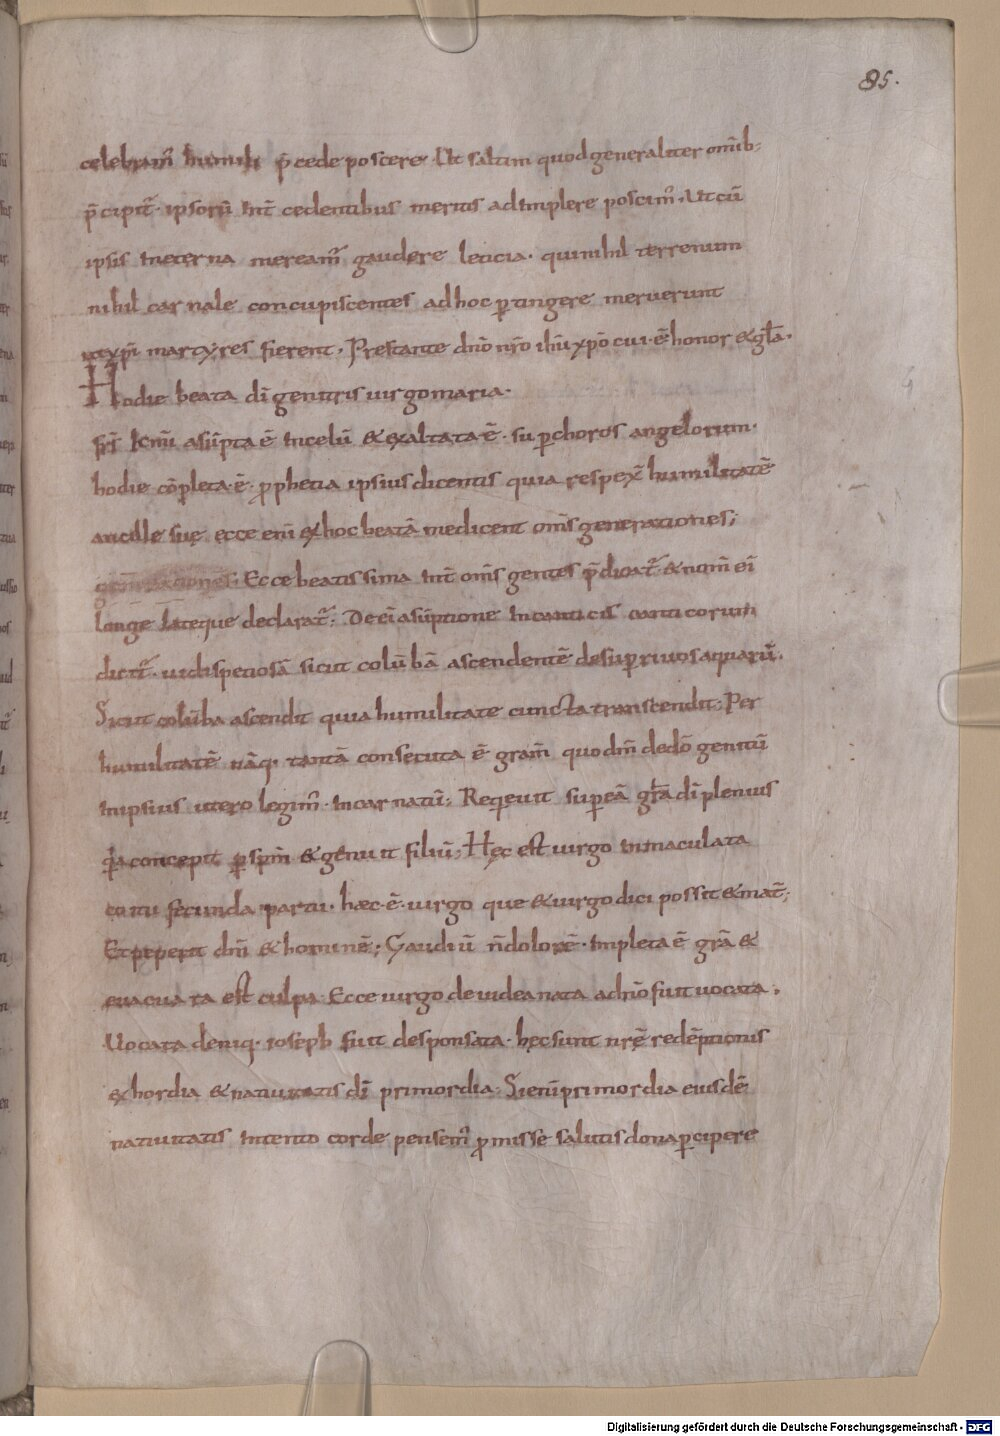 85.
celebram̃ humili p̄cede poscere. Ut saltim quod generaliter om̄ib;
p̄cipit᷑. ipsorũ int̄cedentibus meritis adimplere possim᷒. Ut cũ
ipsis ineterna meream᷑ gaudere leticia. qui nihil terrenum
nihil carnale concupiscentes ad hoc ꝑtingere meruerunt
ut xp̄i martyres fierent. Prestante dn̄o nr̄o ih̄u xp̄o cui. ē honor & gl̄a.
Hodie beata dī genitris uirgo maria.
fr̄s km̄i asũpta ē incelũ & exaltata ē. suꝑ choros angelorum.
hodie cōpleta. ē. ꝓphetia ipsius dicentis quia respex̄ humilitatē
ancille suę. ecce eni̅ ex hoc beatā me dicent om̄s generationes;
generationes; Ecce beatissima int̄ om̄s gentes p̄dicat᷑ & nom̄ ei᷒
longe lateque declarat᷑; De ei᷒ asũptione in canticis canticorum
dicit᷑. uidi speciosā sicut colũbā ascendentē desuꝑ riuos aquarũ.
Sicut colũba ascendit quia humilitate cuncta transcendit; Per
humilitatē nāq. tantā consecuta ē gram̄ quo dm̄ de dō genitũ
in ipsius utero legim᷒. incarnatũ; Requieuit suꝑ eā gr̄a dī plenius
q̄a concepit ꝑ sp̄m & genuit filiũ; Hęc est uirgo inmaculata
coitu fecunda partu. hæc. ē. uirgo que & uirgo dici possit & mat̄;
Et peperit dm̄ & hominē; Gaudiũ n̄ dolorē. impleta ē gr̄a &
euacuata est culpa. Ecce uirgo de uidea nata a dn̄o fuit uocata.
Uocata deniq. ioseph fuit desponsata. hęc sunt nr̄ę redēptionis
exhordia & natiuitatis dī primordia; Si eni̅ primordia eiusdē
natiuitatis intento corde pensem᷒ ꝓmisse salutis dona ꝑcipere
Digitalisierung gefördert durch die Deutsche Forschungsgemeinschaft - DFG